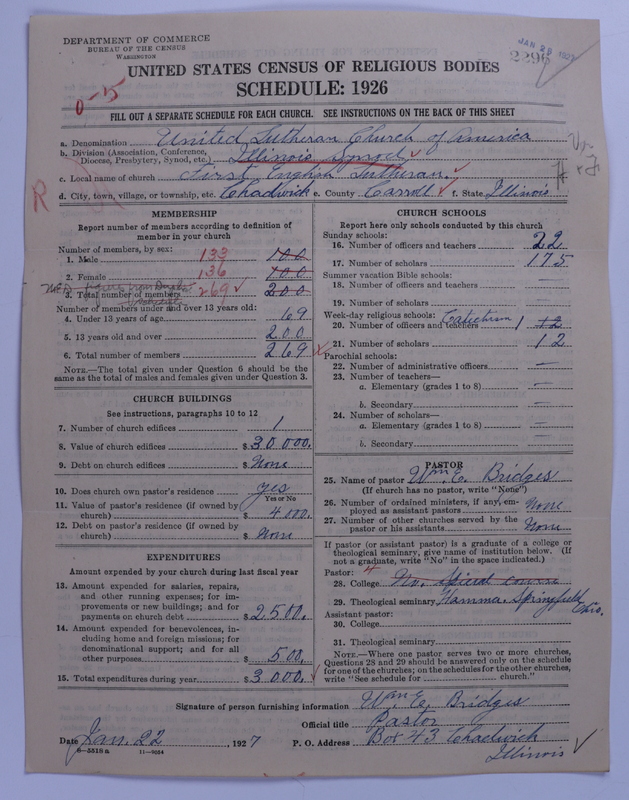 DEPARTMENT OF COMMERCE
BUREAU OF THE CENSUS
WASHINGTON
JAN 28 1927
2296
UNITED STATES CENSUS OF RELIGIOUS BODIES
SCHEDULE: 1926
0-15
FILL OUT A SEPARATE SCHEDULE FOR EACH CHURCH. SEE INSTRUCTIONS ON THE BACK OF THIS SHEET
a. Denomination United Lutheran Church of America
b. Division (Association, Conference, Diocese, Presbytery, Synod, etc.) Illinois Synod
c. Local name of church First English Lutheran.
R
d. City, town, village, or township, etc. Chadwick e. County Carroll f. State Illinois
MEMBERSHIP
Report number of members according to definition of member in your church
Number of members, by sex:
1. Male 133 100
2. Female 136 100
3. Total number of members 269 200
Number of members under and over 13 years old:
4. Under 13 years of age 69
5. 13 years old and over 200
6. Total number of members 269
NOTE.—The total given under Question 6 should be the same as the total of males and females given under Question 3.
CHURCH BUILDINGS
See instructions, paragraphs 10 to 12
7. Number of church edifices 1
8. Value of church edifices $ 30 000.
9. Debt on church edifices $ None
10. Does church own pastor's residence yes
Yes or No
11. Value of pastor's residence (if owned by church) $ 4 000.
12. Debt on pastor's residence (if owned by church) $ None
EXPENDITURES
Amount expended by your church during last fiscal year
13. Amount expended for salaries, repairs, and other running expenses; for improvements or new buildings; and for payments on church debt $ 2500.
14. Amount expended for benevolences, including home and foreign missions; for denominational support; and for all other purposes $ 500.
15. Total expenditures during year $ 3000.
CHURCH SCHOOLS
Report here only schools conducted by this church
Sunday schools:
16. Number of officers and teachers 22
17. Number of scholars 175
Summer vacation Bible schools:
18. Number of officers and teachers —
19. Number of scholars —
Week-day religious schools: Catechism
20. Number of officers and teachers 1 12
21. Number of scholars 12
Parochial schools:
22. Number of administrative officers —
23. Number of teachers—
a. Elementary (grades 1 to 8) —
b. Secondary —
24. Number of scholars—
a. Elementary (grades 1 to 8) —
b. Secondary —
PASTOR
25. Name of pastor Wm. E. Bridges
(If church has no pastor, write "None")
26. Number of ordained ministers, if any, employed as assistant pastors None
27. Number of other churches served by the pastor or his assistants None
If pastor (or assistant pastor) is a graduate of a college or theological seminary, give name of institution below. (If not a graduate, write "No" in the space indicated.)
Pastor: 4
28. College No.
29. Theological seminary Hamma. Springfield Ohio.
Assistant pastor:
30. College
31. Theological seminary
NOTE.—Where one pastor serves two or more churches, Questions 28 and 29 should be answered only on the schedule for one of the churches; on the schedules for the other churches, write "See schedule for church."
Signature of person furnishing information Wm. E. Bridges
Official title Pastor
Date Jan. 22, 1927 P. O. Address Box 43 Chadwick
Illinois
8—5518a 11—9054